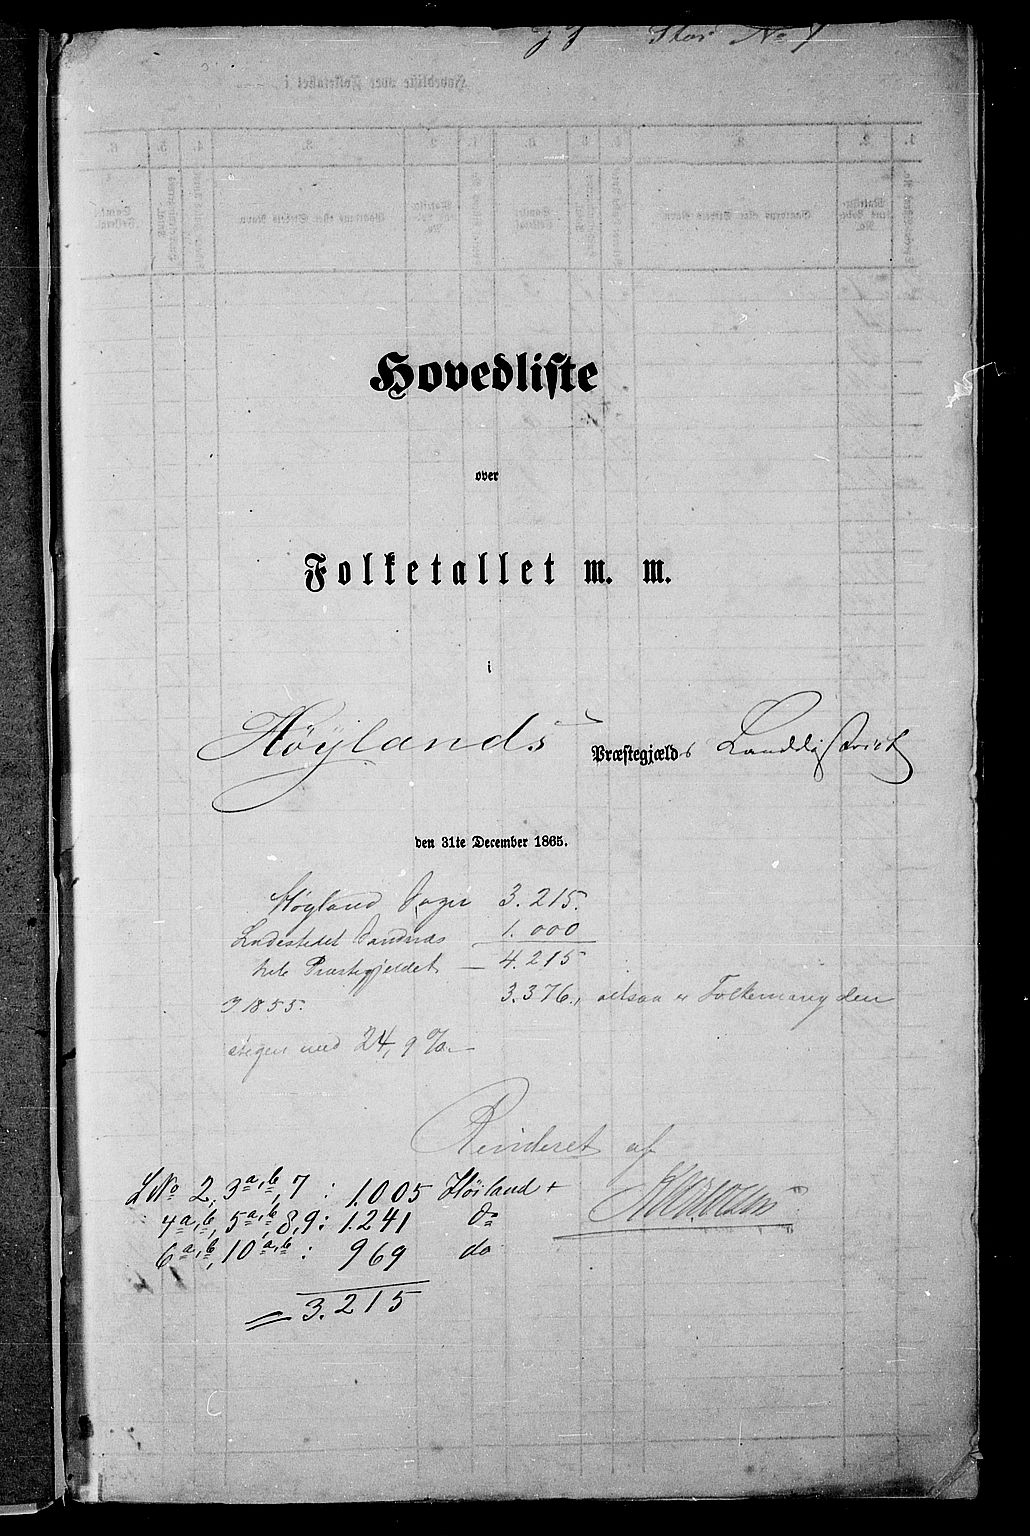 Hovedliste
over
Folketallet m. m.
i
Høylands Præstegjælds Landdistrict
den 31te December 1865.
Høyland Sogn 3.215.
Ladestedet Sandnæs 1.000
hele Præstegjeldet — 4.215
I 1855. 3.376., altsaa er Folkemængden
stegen med 24,9 %.—
Revideret af
L No 2, 3a,b, 7 : 1.005 Høiland +
4a,b, 5a,b, 8, 9: 1.241 do
6a,b, 10a,b : 969 do
= 3.215